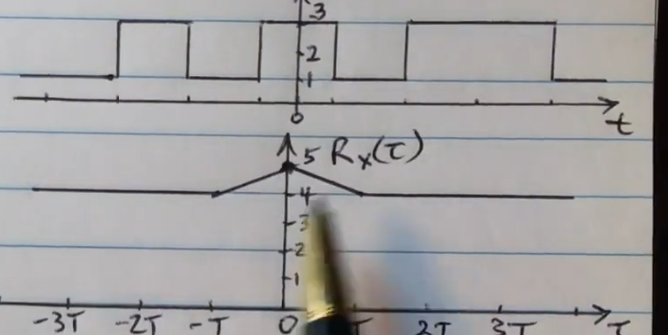 3
2
1
0
t
5 Rx(τ)
4
3
2
1
-3T -2T -T 0 T 2T 3T τ